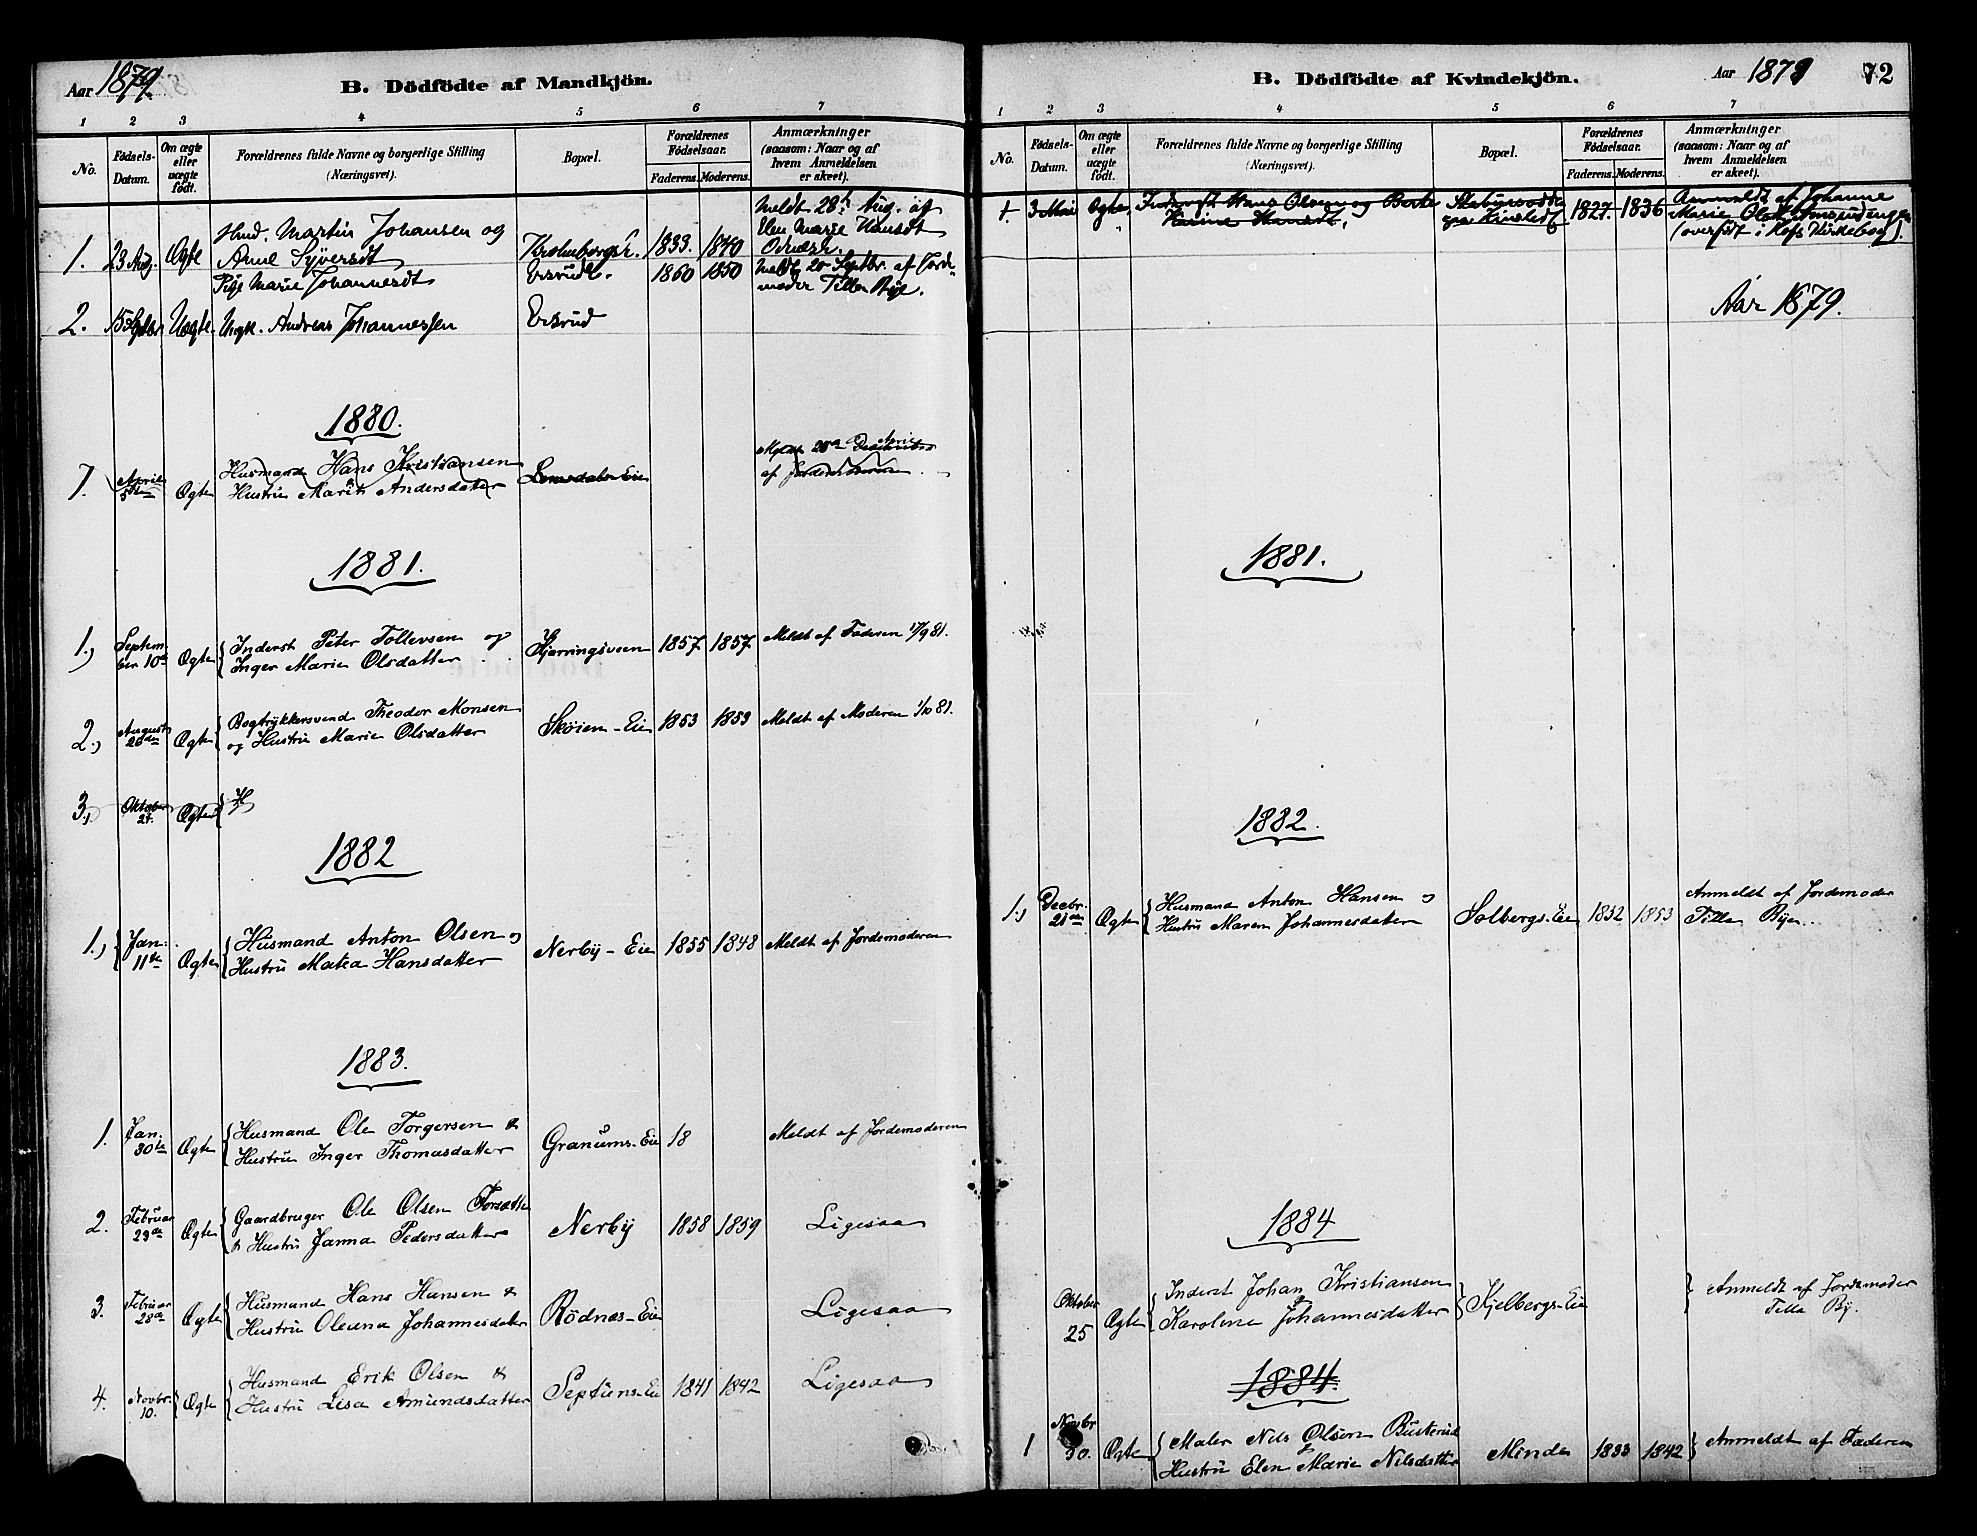 Aar 1879.
B. Dödfödte af Mandkjön.
1 2 3 4 5 6 7
No.
Födsels-Datum.
Om ægte eller uægte födt.
Forældrenes fulde Navne og borgerlige Stilling
(Næringsvei).
Bopæl.
Forældrenes Födselsaar.
Faderens. Moderens.
Anmærkninger
(saasom: Naar og af
hvem Anmeldelsen
er skeet).
Hmd. Martin Johansen og
1. 23 Aug. Ægte Anne Syversdt 1833. 1840
Meldt 28. Aug. af
Elen Marie Hansdt
Pige Marie Johannesdt 1860 1850
Meldt 20 Septbr. af Jorde-
moder Tilla Bye.
2. 15 Septbr Uægte. Ungk. Andreas Johannessen Eksrud
1880.
1. April 5te Ægte Husmand Hans Kristiansen
Hustru Marit Andersdatter
af Jordemoderen
1881.
1.) September 10de Ægte Inderst Peter Tollevsen og
Inger Marie Olsdatter 1857 1857 Meldt af Faderen 17/9 81.
2.) August 26de Ægte Bogtrykkersvend Theodor Monsen
og Hustru Marie Olsdatter Skøien-Eie 1853 1853 Meldt af Moderen 1/10 81.
3.) Oktober 27. Ægte H
1882
1.) Jan. 11te Ægte Husmand Anton Olsen og
Hustru Matea Hansdatter Nerby-Eie 1855 1848 Meldt af Jordemoderen
1883.
1. Jan. 30te Ægte Husmand Ole Torgersen &
Hustru Inger Thomasdatter Granums-Eie 18 Meldt af Jordemoderen
2. Februar 23de Ægte Gaardbruger Ole Olsen
& Hustru Janna Pedersdatter Nerby 1858 1859 Ligesaa
3. Februar 28de Ægte Husmand Hans Hansen &
Hustru Oleana Johannesdatter Rödnæs-Eie Ligesaa
4. Novbr. 10. Ægte Husmand Erik Olsen &
Hustru Lisa Amundsdatter 1841 1842 Ligesaa
B. Dödfödte af Kvindekjön.
Aar 1879 72
1 2 3 4 5 6 7
No.
Födsels-Datum.
Om ægte eller uægte födt.
Forældrenes fulde Navne og borgerlige Stilling
(Næringsvei).
Bopæl.
Forældrenes Födselsaar.
Faderens. Moderens.
Anmærkninger
(saasom: Naar og af
hvem Anmeldelsen
er skeet).
1 3 Mai Ægte, Hans Olsen og Berte
Karine Hansdt. 1827. 1836 Anmeldt af Johanne
Marie
(overført i Kirkebog).
Aar 1879.
1881.
1882.
1.) Decbr. 21de Ægte Husmand Anton Hansen og
Hustru Maren Johannesdatter Solbergs-Eie 1852 1853 Anmeldt af Jordemoder
Tilla Bye.
1884
Oktober 25 Ægte Inderst Johan Kristiansen &
Karoline Johannesdatter Kjelbergs-Eie Anmeldt af Jordemoder
Tilla By.
1884.
1 Novbr 30. Ægte Maler Nils Olsen Busterud
& Hustru Elen Marie Nilsdatter Minde 1833 1842 Anmeldt af Faderen